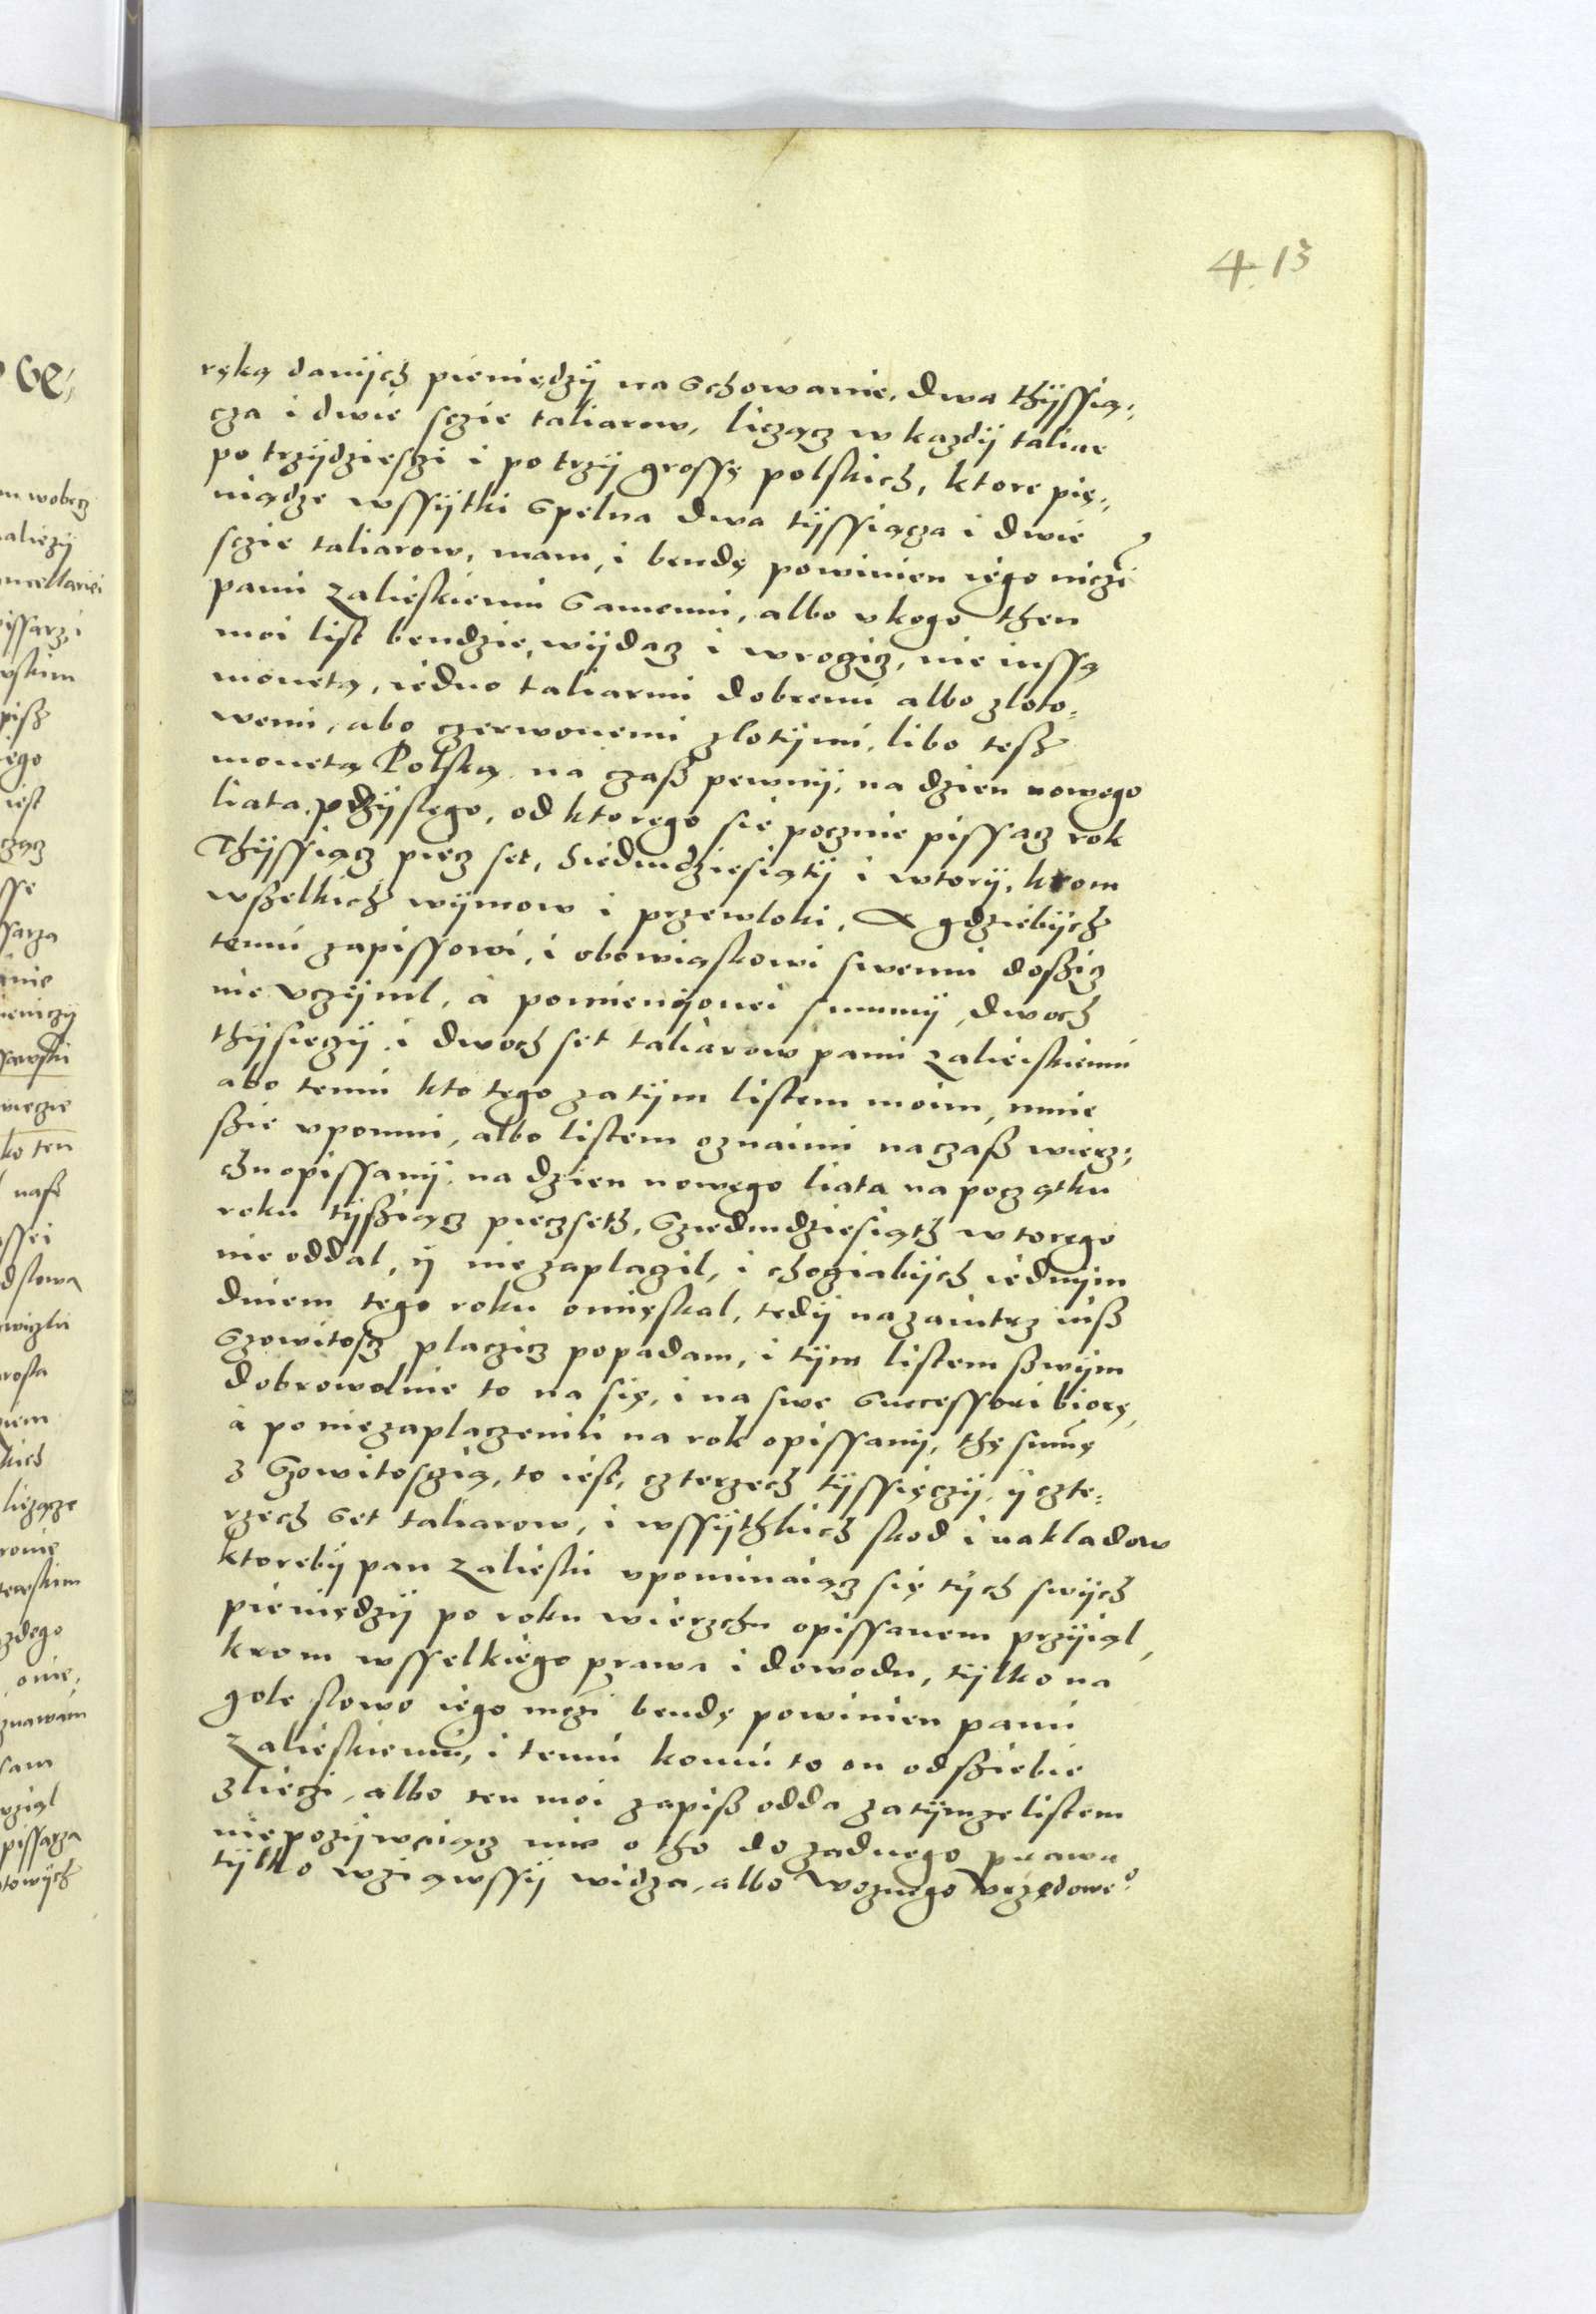 4.13
ręką danÿch pieniędzÿ na schowanie, dwa thÿssią¸
cza i dwie sczie taliarow, licząc w kazdÿ taliar
po trzÿdziesczi i po trzÿ grossę polskich, ktore pię¸
niądze wssÿtki spelna dwa tÿssiącza i dwie
sczie taliarow, mam, i bendę powinien iego miczi
panu Zalieskiemu samemu, albo v kogo then
moi list bendzie, wÿdacz i wrocicz, nie inssą
monetą, iedno taliarmi dobremi albo zloto¸
wemi, abo czerwonemi zlotÿmi, libo tesz
monetą Polską na czasz pewnÿ, na dzien nowego
liata przÿslego, od ktorego się pocznie pissacz rok
Thÿssiącz piecz set, siedmdziesiątÿ i wtorÿ, krom
wszelkich wÿmow i przewloki, A gdziebÿch
temu zapissowi, i obowiąskowi swemu doszicz
nie vczÿnil, a pomienÿonei summÿ, dwoch
thÿsięczÿ i dwoch set taliarow panu Zalieiskiemu
abo temu kto tego za tÿm listem moim, mnie
szie vpomni, albo listem oznaimi na czasz wierz¸
chu opissanÿ na dzien nowego liata na początku
roku tÿsziącz pieczseth, sziedmdziesiąth wtorego
nie oddal, ÿ nie zaplazil, i choziabÿch iednÿm
dniem tego roku omięskal, tedÿ nazaintrz iusz
szowitoscz placzicz popadam, i tÿm listem szwÿm
dobrowolnie to na się, i na swe successori biorę,
a po niezaplaczeniu na rok opissanÿ, thę sumę
z szowitosczią, to iest, czterzech tÿssięczÿ, ÿ czte¸
rzech set taliarow, i wssÿthkich skod i nakladow
ktorebÿ pan Zalieski vpominaiącz się tÿch swÿch
pieniędzÿ po roku wierzchu opissanem przÿial,
krom wsselkiego prawa i dowodu, tÿlko na
gole slowo iego mczi bendę powinien panu
Zalieskiemu, i temu komu to on od sziebie
zlieczi, albo ten moi zapisz odda za tÿmze listem
nie pozÿwaiącz mie o tho do zadnego prawa
tÿlko wziąwssÿ widza, albo Woznego Vrzędowe°